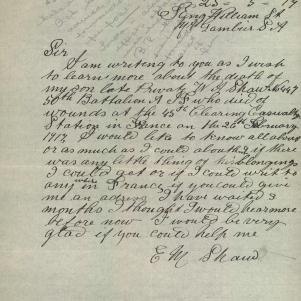 25-5-17
King William St
Mt Gambier S.A
Sir
I am writing to you as I wish
to learn more about the death of
my son late Private W. A. Shaw 1647
50th Battalion A I F who died of
wounds at the 45th Clearing Casualty
Station in France on the February
1917 I would like to know all about
or as much as I could about & if there
was any little thing of his belongings
I could get or if I could writ to
any over in France if you could give
me an adress I have waited 3
months I thought I would hear more
before now I would be very
glad if you could help me
E M Shaw